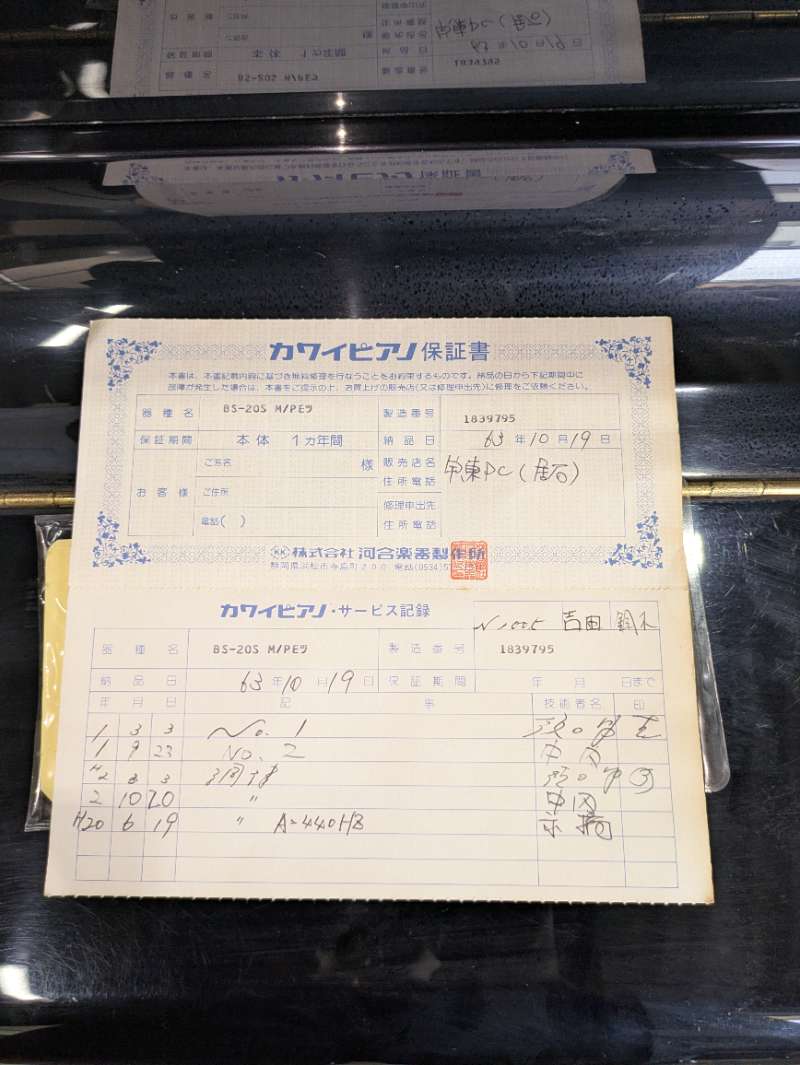 カワイピアノ 保証書
本書は、本書記載内容に基づき無料修理を行なうことをお約束するものです。納品の日から下記期間中に
故障が発生した場合は、本書をご提示の上、お買上げの販売店(又は修理申出先)に修理をご依頼ください。
器種名 BS-20S M/PEｸ 製造番号 1839795
保証期間 本体 1カ年間 納品日 63年10月19日
お客様 ご氏名 様 販売店名
住所 電話
ご住所 修理申出先
電話( ) 住所 電話
株式会社 河合楽器製作所
静岡県浜松市寺島町200 電話(0534)
カワイピアノ・サービス記録
吉田 鈴木
器種名 BS-20S M/PEｸ 製造番号 1839795
納品日 63年10月19日 保証期間 年 月 日まで
年 月 日 記 事 技術者名 印
1 3 3 No. 1
1 9 23 No. 2
H2 3 3 調律
2 10 20 〃
H20 6 19 〃 A=440HZ